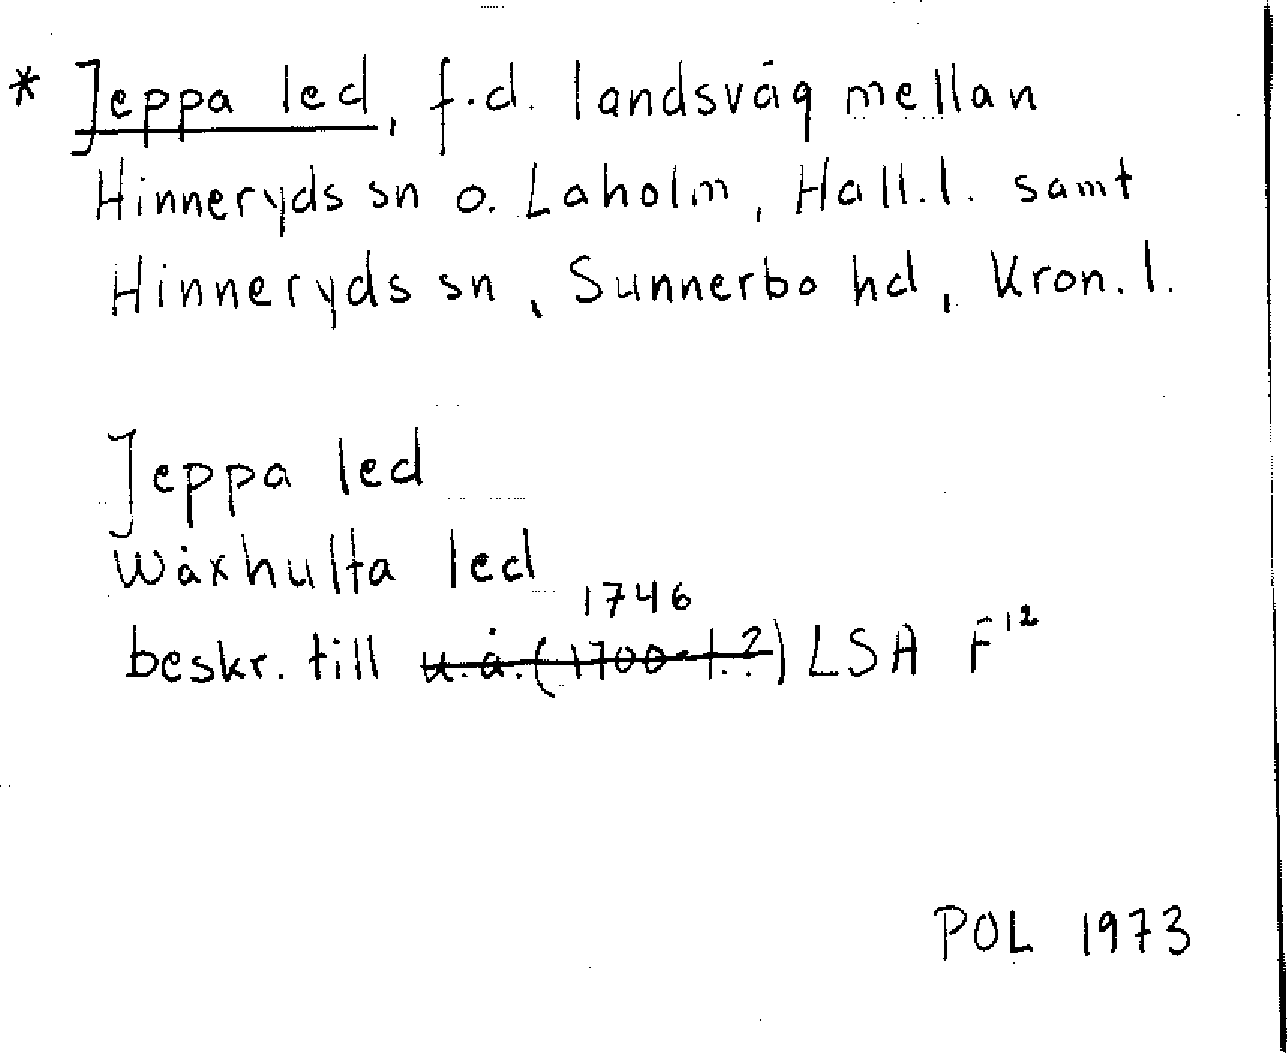 * Jeppa led, f.d. landsväg mellan
Hinneryds sn o. Laholm, Hall.l. samt
Hinneryds sn, Sunnerbo hd, Kron.l.
Jeppa led
Wäxhulta led
1746
beskr. till u.å.(1700-t.?) LSA F¹²
POL 1973